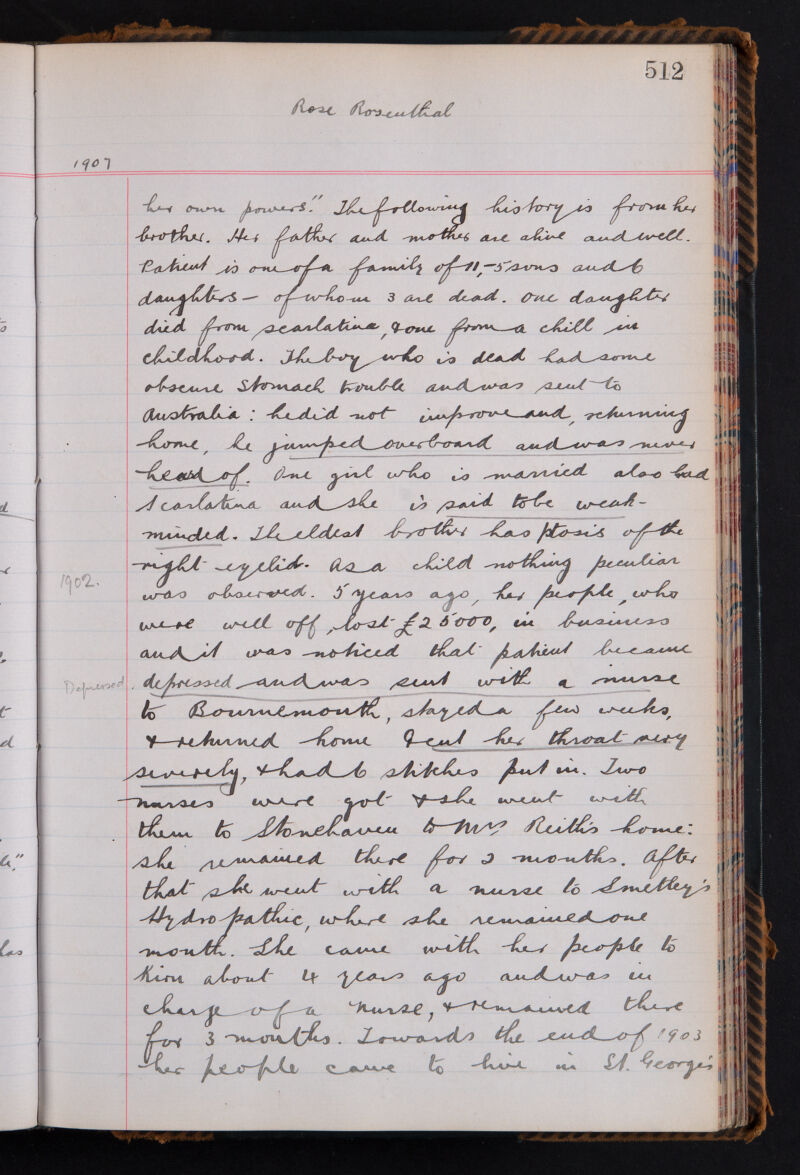 512
Rose Rosenthal
1907
her own powers." The following history is from her
brother. Her father and mother are alive and well.
Patient is one of a family of 11,–5 sons and 6
daughters – of whom 3 are dead. One daughter
died from scarlatina, & one from a chill in
childhood. The boy who is dead had some
obscure stomach trouble and was sent to
Australia: he did not improve and, returning
home, he jumped overboard and was never
heard of. One girl who is married also had
scarlatina and she is said to be weak-
minded. The eldest brother has ptosis of the
right eyelid. As a child nothing peculiar
1902.
was observed. 5 years ago, her people, who
were well off, lost £25000, in business
and it was noticed that patient became
Depressed.
depressed and was sent with a nurse
to Bournemouth, stayed a few weeks,
& returned home & cut her throat very
severely, & had 6 stitches put in. Two
nurses were got & she went with
them to Stonehaven to Mrs Reith's home:
she remained there for 3 months. After
that she went with a nurse to Smetley's
Hydropathic, where she remained one
month. She came with her people to
Kirn about 4 years ago and was in
charge of a nurse, & remained there
for 3 months. Towards the end of 1903
her people came to live in St. George's